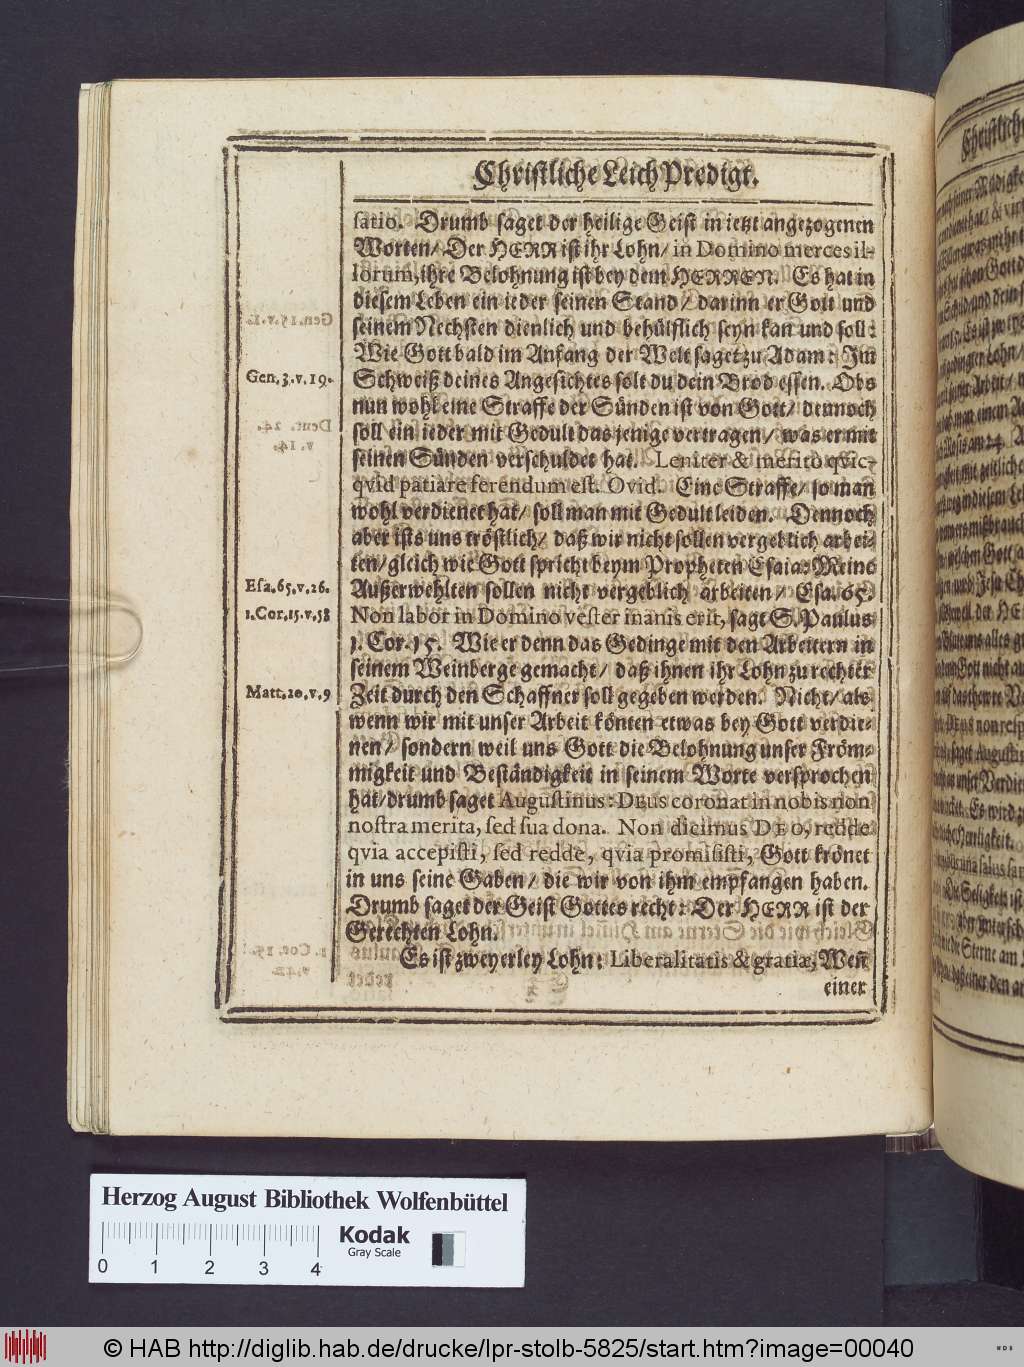 Christliche Leich Predigt.
satio. Drumb saget der heilige Geist in ietzt angezogenen
Worten/ Der HERR ist ihr Lohn/ in Domino merces il-
lorum, ihre Belohnung ist bey dem HERREN. Es hat in
diesem Leben ein ieder seinen Stand/ darinn er Gott und
seinem Nechsten dienlich und behülfflich seyn kan und soll:
Wie Gott bald im Anfang der Welt saget zu Adam: Im
Gen. 3. v. 19.
Schweiß deines Angesichtes solt du dein Brod essen. Obs
nun wohl eine Straffe der Sünden ist von Gott/ dennoch
soll ein ieder mit Gedult das jenige vertragen/ was er mit
seinen Sünden verschuldet hat. Leniter & merito qvic-
qvid patiare ferendum est. Ovid. Eine Straffe/ so man
wohl verdienet hat/ soll man mit Gedult leiden. Dennoch
aber ists uns tröstlich/ daß wir nicht sollen vergeblich arbei-
ten/ gleich wie Gott spricht beym Propheten Esaia: Meine
Esa. 65. v. 26.
Außerwehlten sollen nicht vergeblich arbeiten/ Esa. 65.
1. Cor. 15. v. 58
Non labor in Domino vester inanis erit, sagt S. Paulus
1. Cor. 15. Wie er denn das Gedinge mit den Arbeitern in
seinem Weinberge gemacht/ daß ihnen ihr Lohn zu rechter
Matt. 20. v. 9
Zeit durch den Schaffner soll gegeben werden. Nicht/ als
wenn wir mit unser Arbeit könten etwas bey Gott verdie-
nen/ sondern weil uns Gott die Belohnung unser Fröm-
migkeit und Beständigkeit in seinem Worte versprochen
hat/ drumb saget Augustinus: DEus coronat in nobis non
nostra merita, sed sua dona. Non dicimus DEO, redde
qvia accepisti, sed redde, qvia promisisti, Gott krönet
in uns seine Gaben/ die wir von ihm empfangen haben.
Drumb saget der Geist Gottes recht: Der HERR ist der
Gerechten Lohn.
Es ist zweyerley Lohn: Liberalitatis & gratiæ, Weñ
einer
Herzog August Bibliothek Wolfenbüttel
Kodak
Gray Scale
0 1 2 3 4
© HAB http://diglib.hab.de/drucke/lpr-stolb-5825/start.htm?image=00040